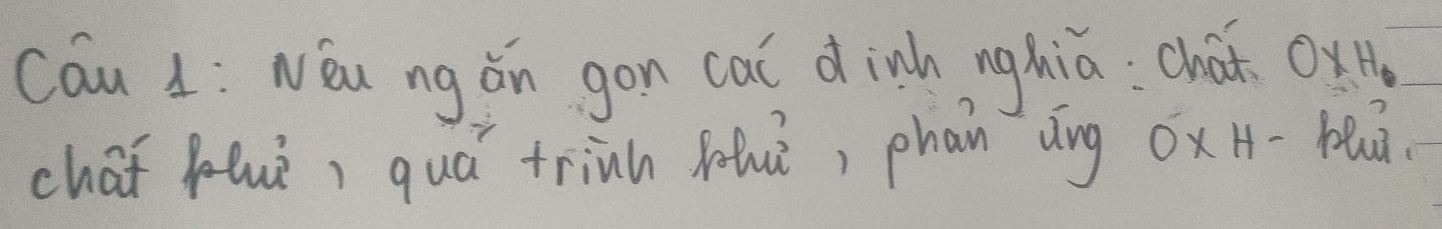 Câu 1: Nêu ngắn gọn các định nghĩa: chất OXH,
chất khử, quá trình khử, phản ứng OXH - khử.